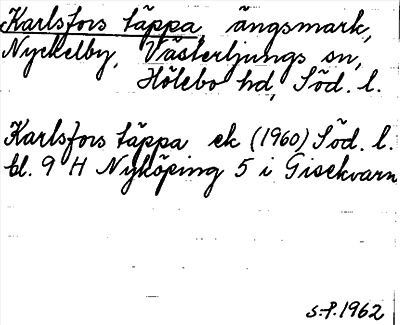 Karlsfors täppa, ängsmark,
Nyckelby, Västerljungs sn,
Hölebo hd, Söd. l.
Karlsfors täppa ek (1960) Söd. l.
bl. 9 H Nyköping 5 i Gisekvarn
S.P. 1962